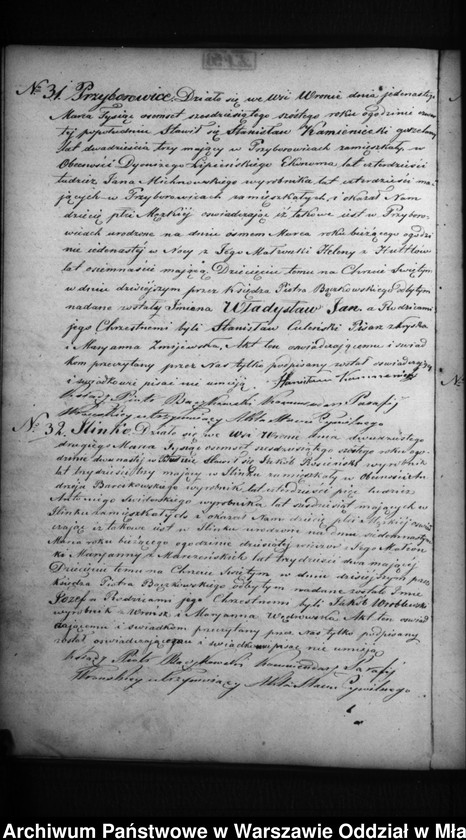 № 31 Przyborowice. Działo się we Wsi Wronie dnia jedenastego
Marca Tysiąc osmset sześdziesiątego szóstego roku o godzinie
tej popołudniu Stawił się Stanisław Kamieniecki
lat dwadzieścia trzy mający w Przyborowicach zamieszkały, w
Obecności Dyonizego Lipińskiego Ekonoma lat czterdzieści
tudzież Jana Michnowskiego wyrobnika lat czterdzieści ma-
jących w Przyborowicach zamieszkałych, i okazał Nam
dziecię płci Męzkiéj oświadczając iż takowe iest w Przybor-
owicach urodzone na dniu osmem Marca roku bieżącego o godzi
nie iedenastej w Nocy z Jego Małżonki Heleny z
lat osiemnaście mającą. Dziecięciu temu na Chrzcie Świętym
w dniu dzisiejszym przez Księdza Piotra Bączkowskiego odbytym
nadane zostały Imiona Władysław Jan, a Rodzicami
jego Chrzestnemi byli Stanisław Pisarz
i Maryanna Żmijewska. Akt ten oświadczającemu i świad
kom przeczytany przez Nas tylko podpisany został
i pisać nie umieją. Stanisław Kamieniecki
Xiądz Piotr Bączkowski Kommendarz Parafij
Wronskiéj utrzymuiący Akta Stanu Cywilnego
№ 32. Slinko. Działo się we Wsi Wronie dnia dwudziestego
drugiego Marca Tysiąc osmset sześdziesiątego szóstego roku o go-
dzinie dwunastéj w Stawił się Jakób wyrobnik
lat trzydzieści trzy mający w Slinku zamieszkały w Obecności An-
drzeja wyrobnika lat czterdzieści pięć tudzież
Antoniego wyrobnika lat siedmdziesiąt mających w
Slinku zamieszkałych i okazał Nam dziecię płci Męzkiéj oświad
czając iż takowe iest w Slinku urodzone na dniu siedmnastym
Marca roku bieżącego o godzinie dziesiątéj z Jego Małżon
ki Maryanny z lat trzydzieści dwa mającéj
Dziecięciu temu na Chrzcie Świętym w dniu dzisiejszym przez
Księdza Piotra Bączkowskiego odbytym nadane zostało Imie
Józef a Rodzicami jego Chrzestnemi byli Jakób Wróblewski
wyrobnik z i Maryanna Akt ten oświad
czającemu i świadkom przeczytany przez Nas tylko podpisany
został oświadczający i świadkowie pisać nie umieją
Xiądz Piotr Bączkowski Kommendarz Parafij
Wronskiéj utrzymuiący Akta Stanu Cywilnego
№
Archiwum Państwowe w Warszawie Oddział w Mła